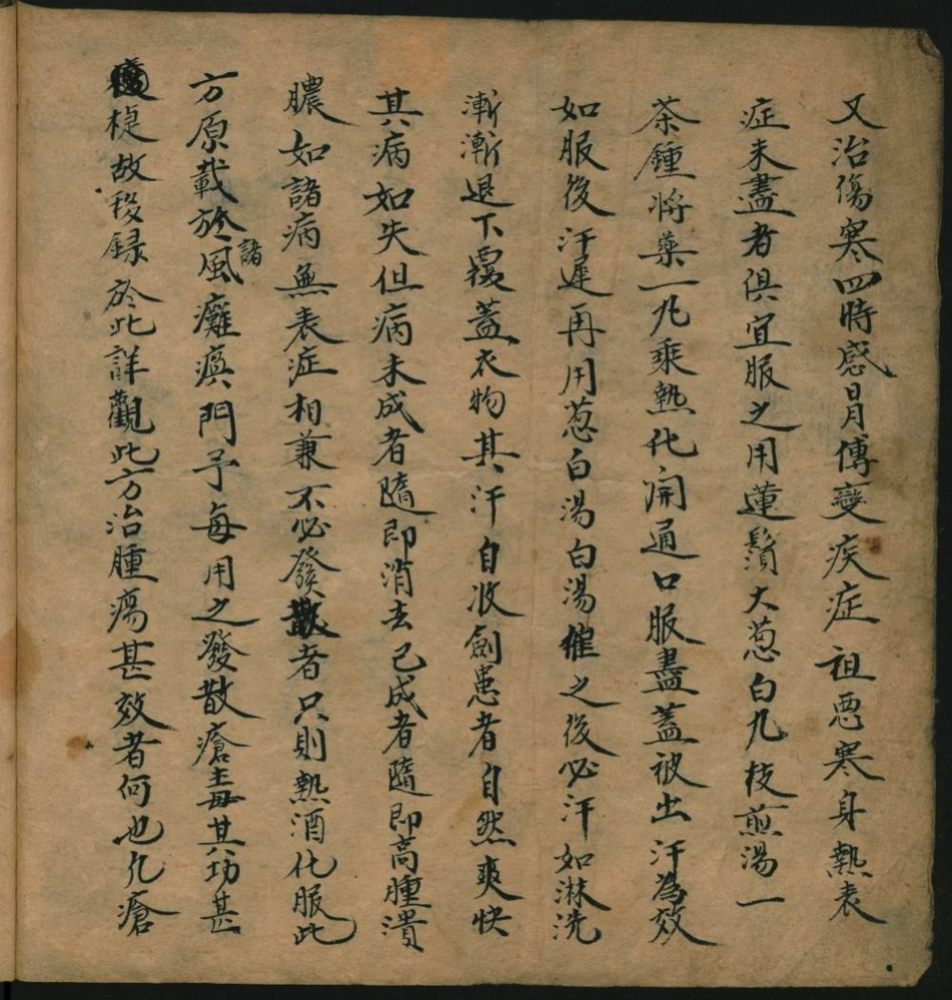 又治傷寒四時感冒傳變疾症祖惡寒身熱表
症未盡者俱宜服之用蓮鬚大葱白九枝煎湯一
茶鍾將藥一丸乘熱化開通口服盡蓋被出汗為效
如服後汗遲再用葱白湯白湯催之後必汗如淋洗
漸漸退下覆蓋衣物其汗自收劍患者自然爽快
其病如失但病未成者隨即消去已成者隨即高腫潰
膿如諸病無表症相兼不必發散者只則熱酒化服此
方原載於諸風癱瘓門予每用之發散瘡毒其功甚
捷故移録於此詳觀此方治腫瘍甚效者何也凡瘡